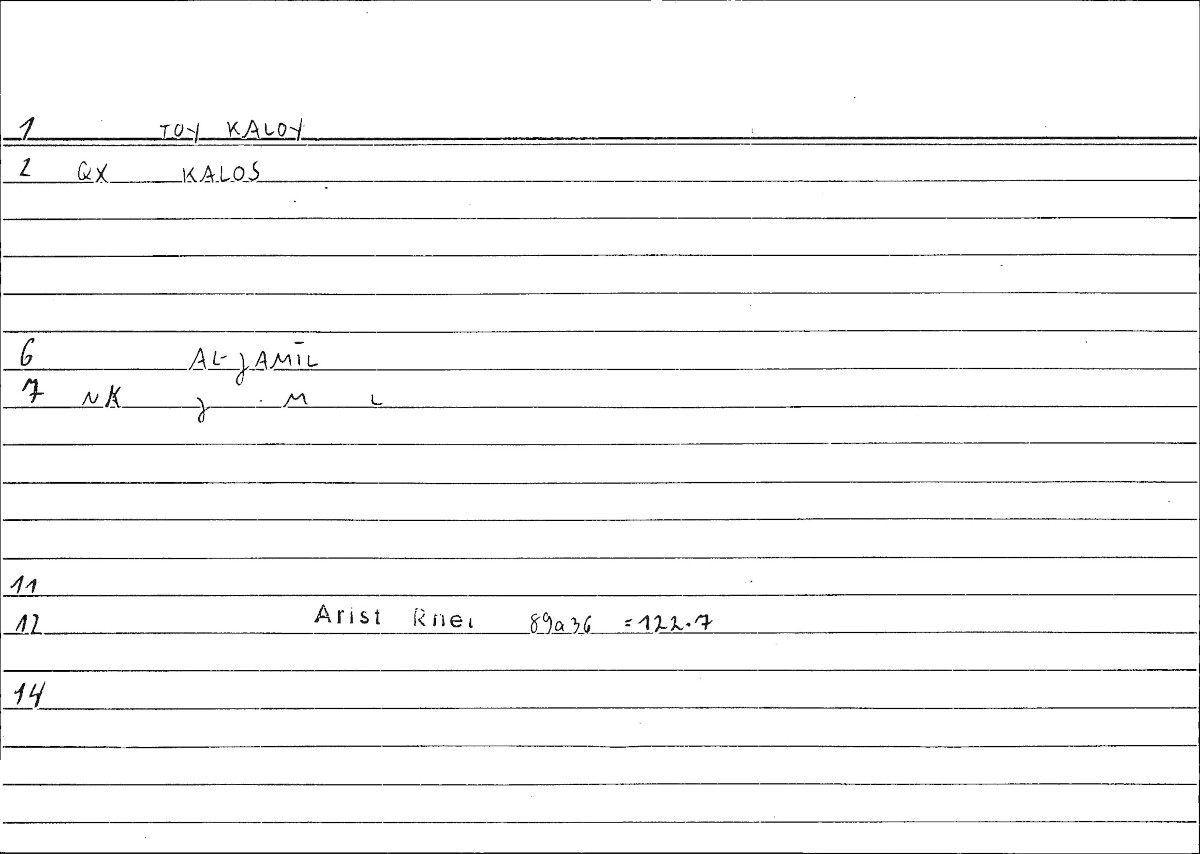 1 TOY KALOY
2 QX KALOS
6 AL-JAMĪL
7 NK J . M L
11
12 Arist Rhet 89a36 =122.7
14